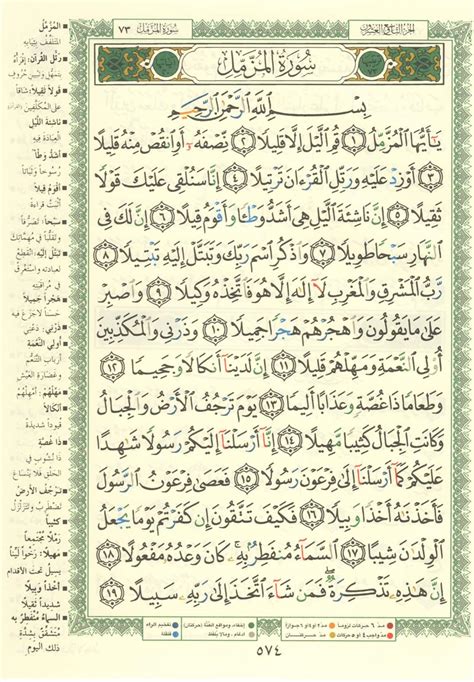 الجزء التاسع والعشرون
سورة المزمل ٧٣
سُورَةُ المُزَّمِّل
بِسْمِ ٱللَّهِ ٱلرَّحْمَٰنِ ٱلرَّحِيمِ
يَٰٓأَيُّهَا ٱلْمُزَّمِّلُ ١ قُمِ ٱلَّيْلَ إِلَّا قَلِيلًا ٢ نِّصْفَهُۥٓ أَوِ ٱنقُصْ مِنْهُ قَلِيلًا
٣ أَوْ زِدْ عَلَيْهِ وَرَتِّلِ ٱلْقُرْءَانَ تَرْتِيلًا ٤ إِنَّا سَنُلْقِى عَلَيْكَ قَوْلًا
ثَقِيلًا ٥ إِنَّ نَاشِئَةَ ٱلَّيْلِ هِىَ أَشَدُّ وَطْـًٔا وَأَقْوَمُ قِيلًا ٦ إِنَّ لَكَ فِى
ٱلنَّهَارِ سَبْحًا طَوِيلًا ٧ وَٱذْكُرِ ٱسْمَ رَبِّكَ وَتَبَتَّلْ إِلَيْهِ تَبْتِيلًا ٨
رَّبُّ ٱلْمَشْرِقِ وَٱلْمَغْرِبِ لَآ إِلَٰهَ إِلَّا هُوَ فَٱتَّخِذْهُ وَكِيلًا ٩ وَٱصْبِرْ
عَلَىٰ مَا يَقُولُونَ وَٱهْجُرْهُمْ هَجْرًا جَمِيلًا ١٠ وَذَرْنِى وَٱلْمُكَذِّبِينَ
أُو۟لِى ٱلنَّعْمَةِ وَمَهِّلْهُمْ قَلِيلًا ١١ إِنَّ لَدَيْنَآ أَنكَالًا وَجَحِيمًا ١٢
وَطَعَامًا ذَا غُصَّةٍ وَعَذَابًا أَلِيمًا ١٣ يَوْمَ تَرْجُفُ ٱلْأَرْضُ وَٱلْجِبَالُ
وَكَانَتِ ٱلْجِبَالُ كَثِيبًا مَّهِيلًا ١٤ إِنَّآ أَرْسَلْنَآ إِلَيْكُمْ رَسُولًا شَٰهِدًا
عَلَيْكُمْ كَمَآ أَرْسَلْنَآ إِلَىٰ فِرْعَوْنَ رَسُولًا ١٥ فَعَصَىٰ فِرْعَوْنُ ٱلرَّسُولَ
فَأَخَذْنَٰهُ أَخْذًا وَبِيلًا ١٦ فَكَيْفَ تَتَّقُونَ إِن كَفَرْتُمْ يَوْمًا يَجْعَلُ
ٱلْوِلْدَٰنَ شِيبًا ١٧ ٱلسَّمَآءُ مُنفَطِرٌۢ بِهِۦ كَانَ وَعْدُهُۥ مَفْعُولًا ١٨
إِنَّ هَٰذِهِۦ تَذْكِرَةٌ فَمَن شَآءَ ٱتَّخَذَ إِلَىٰ رَبِّهِۦ سَبِيلًا ١٩
المُزَّمِّلُ
المتلفف بثيابه
رتل القرآن: اقرأه
بتمهل وتبيين حروف
قولاً ثقيلاً: شاقاً
على المكلفين
ناشئة الليل
العبادة فيه
أشد وطئاً
رسوخاً وثباتاً
أقوم قيلاً
أثبت قراءة
سبحاً: تصرفاً
وتقلباً في مهماتك
تبتل إليه: انقطع
لعبادته واستغرق
في مراقبته
هجراً جميلاً
حسناً لا جزع فيه
ذرني: دعني
أولي النعمة
أرباب التنعم
وغضارة العيش
مهلهم: أمهلهم
أنكالاً
قيوداً شديدة
ذا غصة
ذا نشوب في
الحلق فلا ينساغ
ترجف الأرض
تضطرب وتتزلزل
كثيباً
رملاً مجتمعاً
مهيلاً: رخواً ليناً
يسيل تحت الأقدام
أخذاً وبيلاً
شديداً ثقيلاً
السماء منفطر به
منشق بشدة
ذلك اليوم
مدّ ٦ حركات لزوماً مدّ ٢ أو ٤ أو ٦ جوازاً إخفاء، ومواقع الغنّة (حركتان) تفخيم الراء
مدّ واجب ٤ أو ٥ حركات مدّ حركتان إدغام، وما لا يلفظ قلقلة
٥٧٤